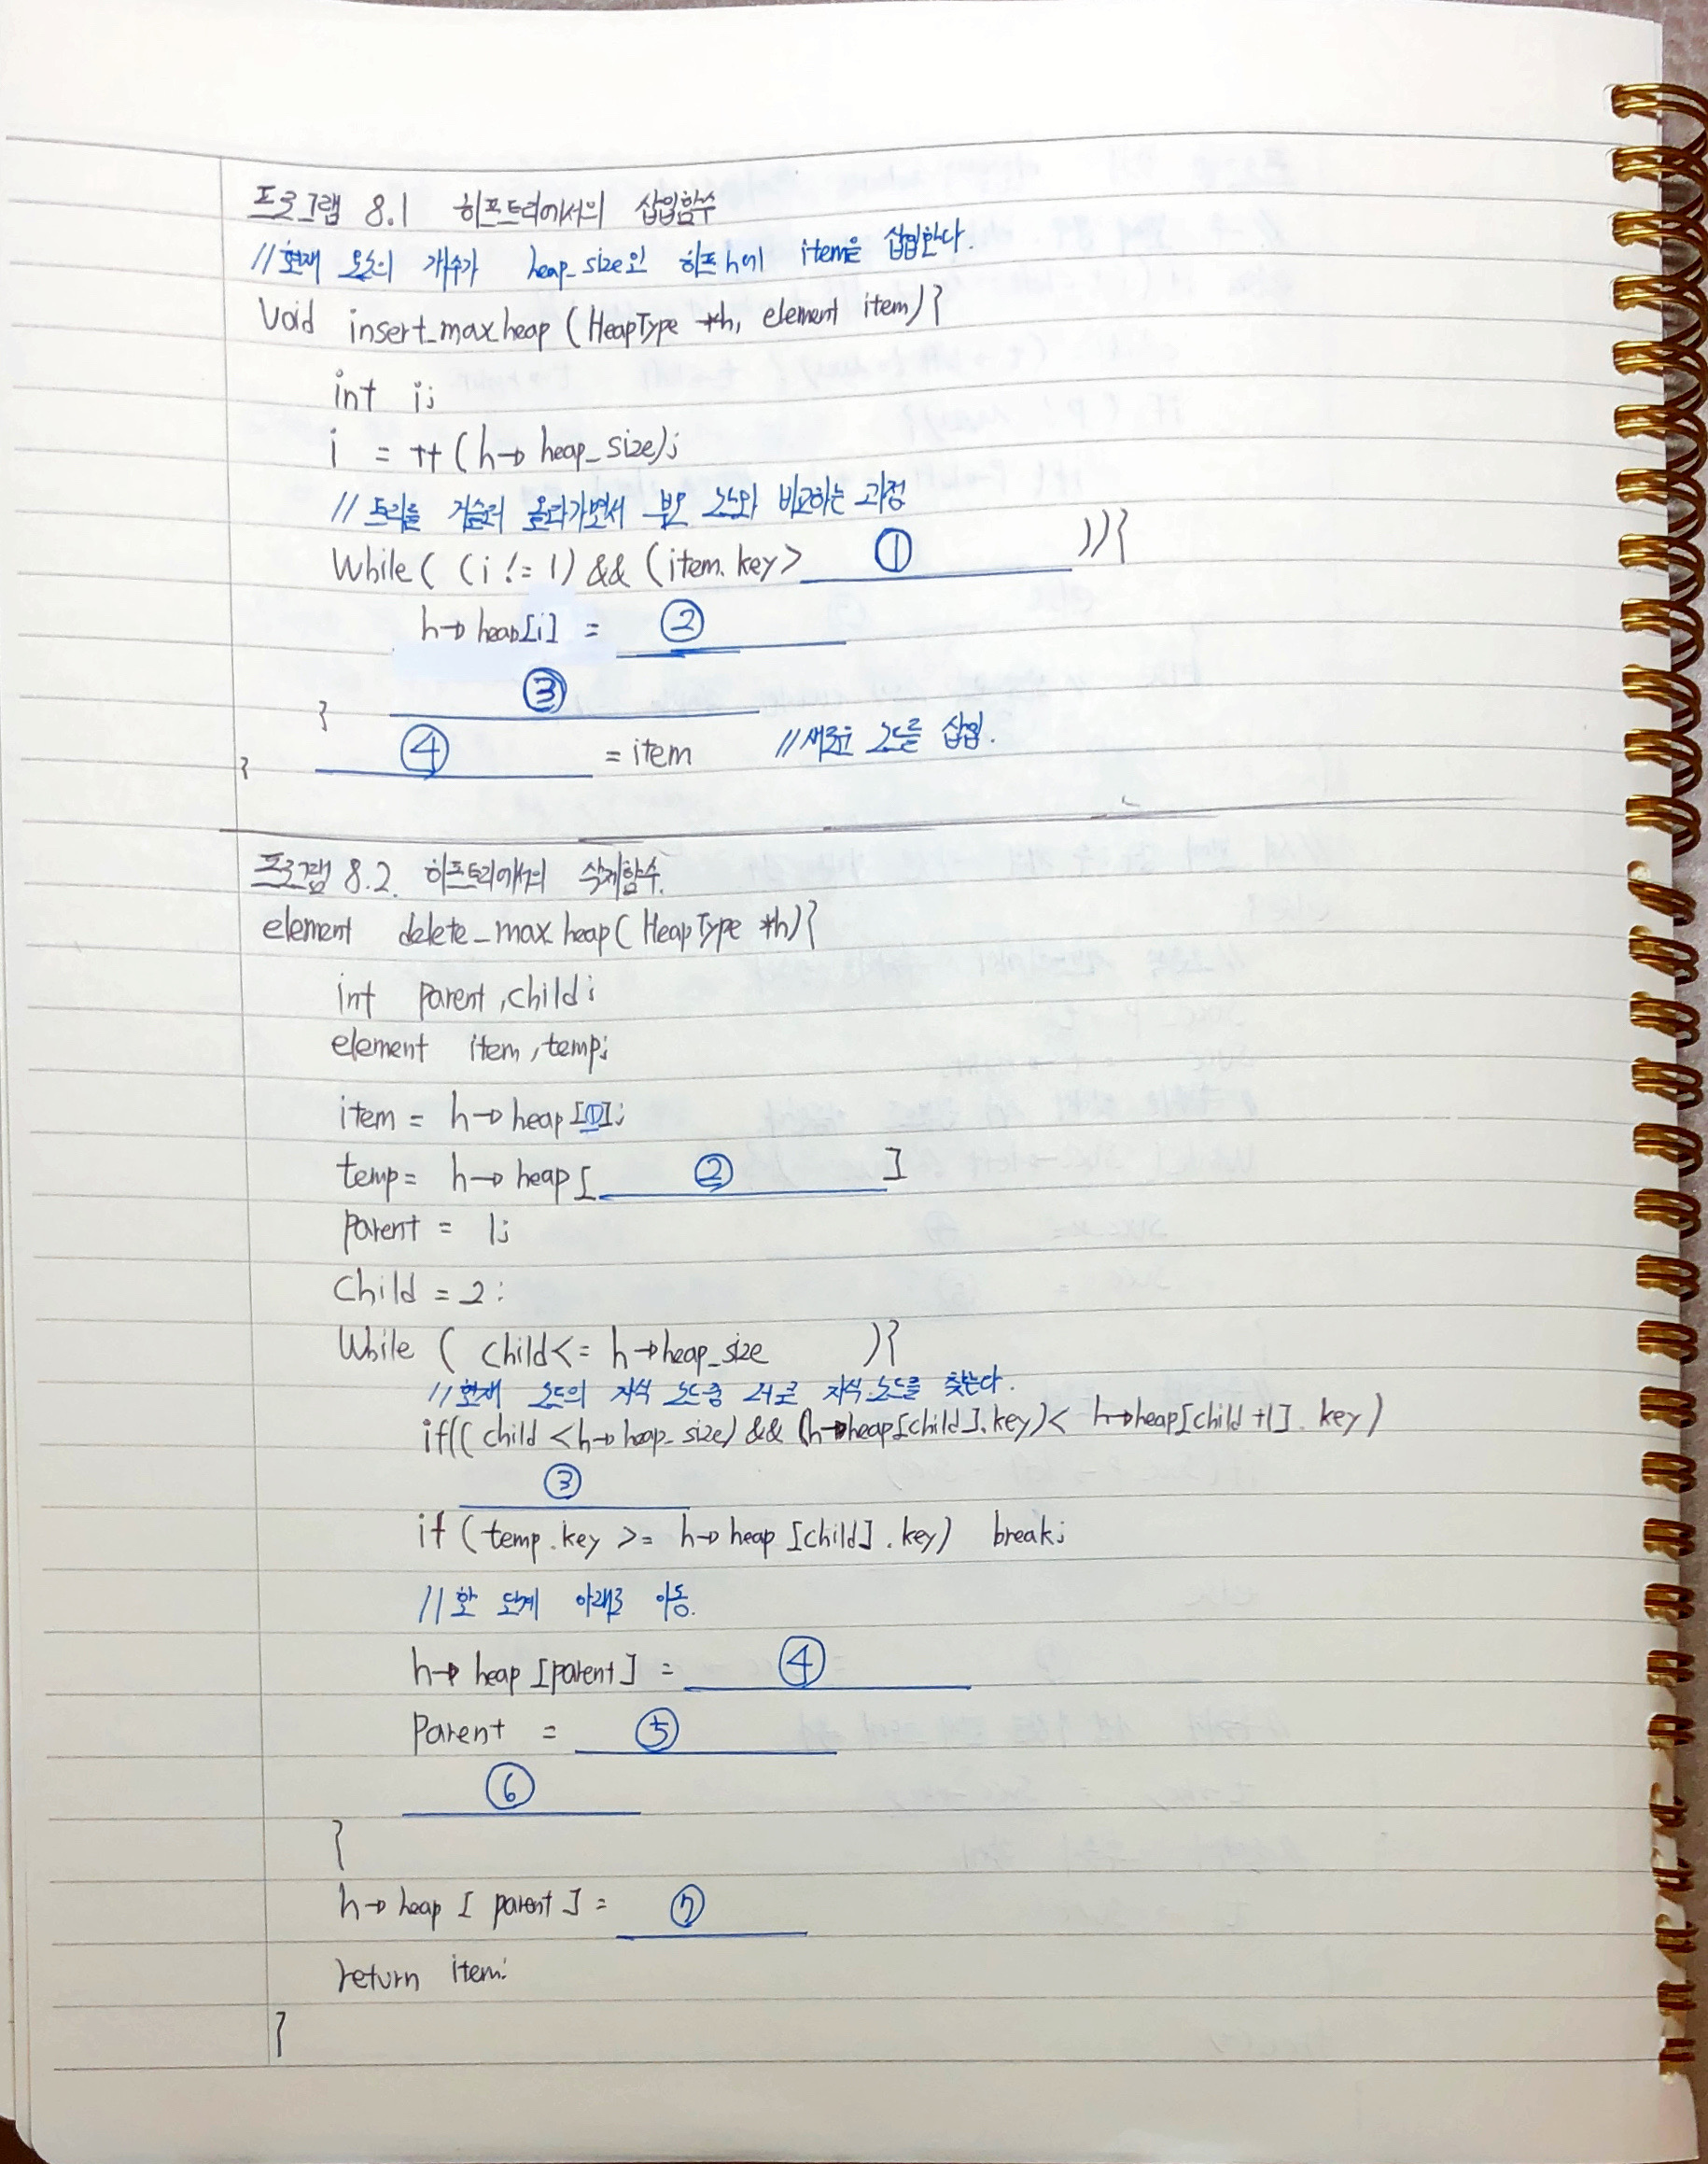 프로그램 8.1 히프트리에서의 삽입함수
//현재 요소의 개수가 heap_size인 히프 h에 item을 삽입한다.
Void insert_max_heap (HeapType *h, element item){
int i;
i = ++(h→heap_size);
// 트리를 거슬러 올라가면서 부모 노드와 비교하는 과정
While( (i != 1) && (item.key> ① )){
h→heap[i] = ②
③
}
④ = item //새로운 노드를 삽입.
}
프로그램 8.2. 히프트리에서의 삭제함수.
element delete_max_heap( HeapType *h){
int parent, child;
element item, temp;
item = h→heap[①];
temp= h→heap[ ② ]
parent = 1;
Child = 2;
While ( child<= h→heap_size ){
//현재 노드의 자식 노드중 더큰 자식.노드를 찾는다.
if(( child <h→heap_size) && (h→heap[child].key)< h→heap[child+1].key)
③
if( temp.key >= h→heap[child].key) break;
//한 단계 아래로 이동.
h→heap[parent] = ④
Parent = ⑤
⑥
}
h→heap[ parent ] = ⑦
return item;
}